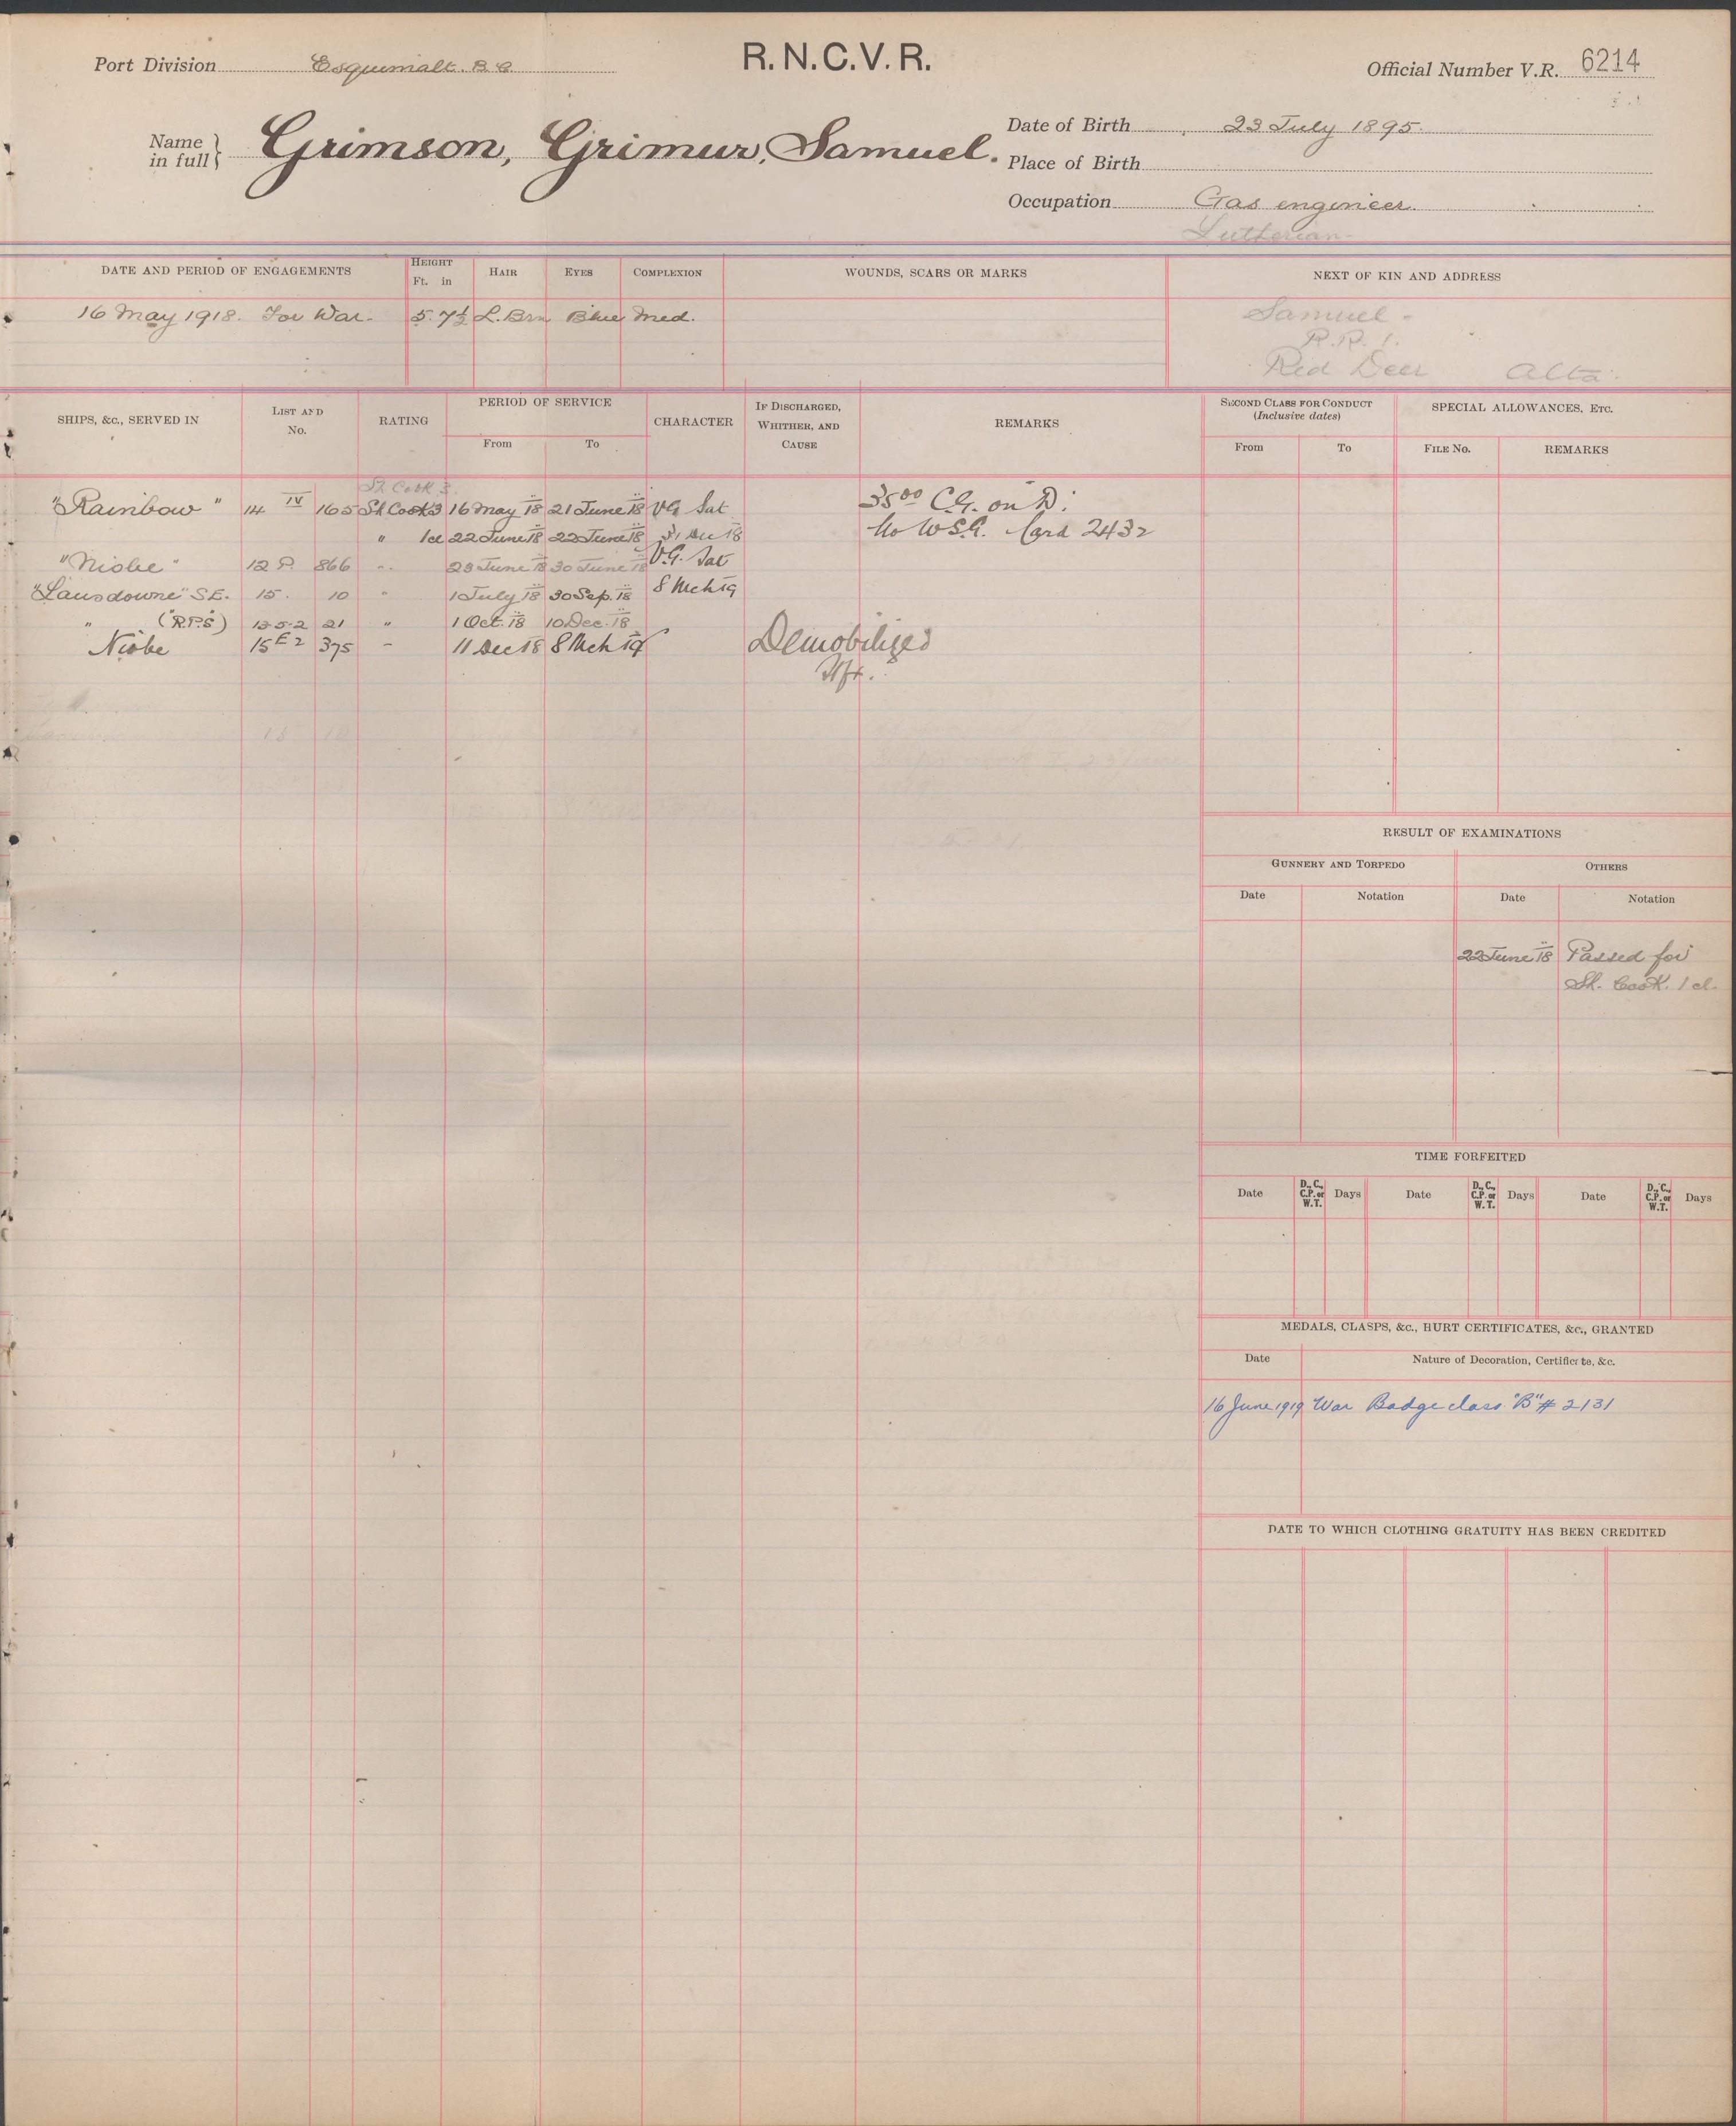 R.N.C.V.R.
Port Division Esquimalt. B.C.
Official Number V.R. 6214
Name in full } Grimson, Grimur, Samuel.
Date of Birth 23 July 1895.
Place of Birth
Occupation Gas engineer.
Lutherian
DATE AND PERIOD OF ENGAGEMENTS HEIGHT Ft. in HAIR EYES COMPLEXION WOUNDS, SCARS OR MARKS NEXT OF KIN AND ADDRESS
16 May 1918. For War. 5. 7½ L. Brn Blue Med.
Samuel -
R.R. 1.
Red Deer Alta.
SHIPS, &c., SERVED IN LIST AND No. RATING PERIOD OF SERVICE From To CHARACTER IF DISCHARGED, WHITHER, AND CAUSE REMARKS
SECOND CLASS FOR CONDUCT (Inclusive dates) From To SPECIAL ALLOWANCES, ETC. FILE No. REMARKS
Sh. Cook 3.
"Rainbow" 14 IV 165 Sh Cook 3 16 May 18 21 June 18 VG Sat 35 00 C.G. on D:
" 1cl 22 June 18 22 June 18 31 Dec 18 No W.S.G. Card 2432
"Niobe" 12 866 " 23 June 18 30 June 18 V.G. Sat
"Lansdowne" S.E. 15. 10 " 1 July 18 30 Sep. 18 8 Mch 19
" (R.P.S) 13-5-2 21 " 1 Oct. 18 10 Dec. 18
Niobe 15 E 2 375 - 11 Dec 18 8 Mch 19 Demobilized
Hfx.
RESULT OF EXAMINATIONS
GUNNERY AND TORPEDO OTHERS
Date Notation Date Notation
22 June 18 Passed for
Sh. Cook. 1 cl.
TIME FORFEITED
Date D., C., C.P. or W.T. Days Date D., C., C.P. or W.T. Days Date D., C., C.P. or W.T. Days
MEDALS, CLASPS, &c., HURT CERTIFICATES, &c., GRANTED
Date Nature of Decoration, Certificate, &c.
16 June 1919 War Badge class "B" # 2131
DATE TO WHICH CLOTHING GRATUITY HAS BEEN CREDITED